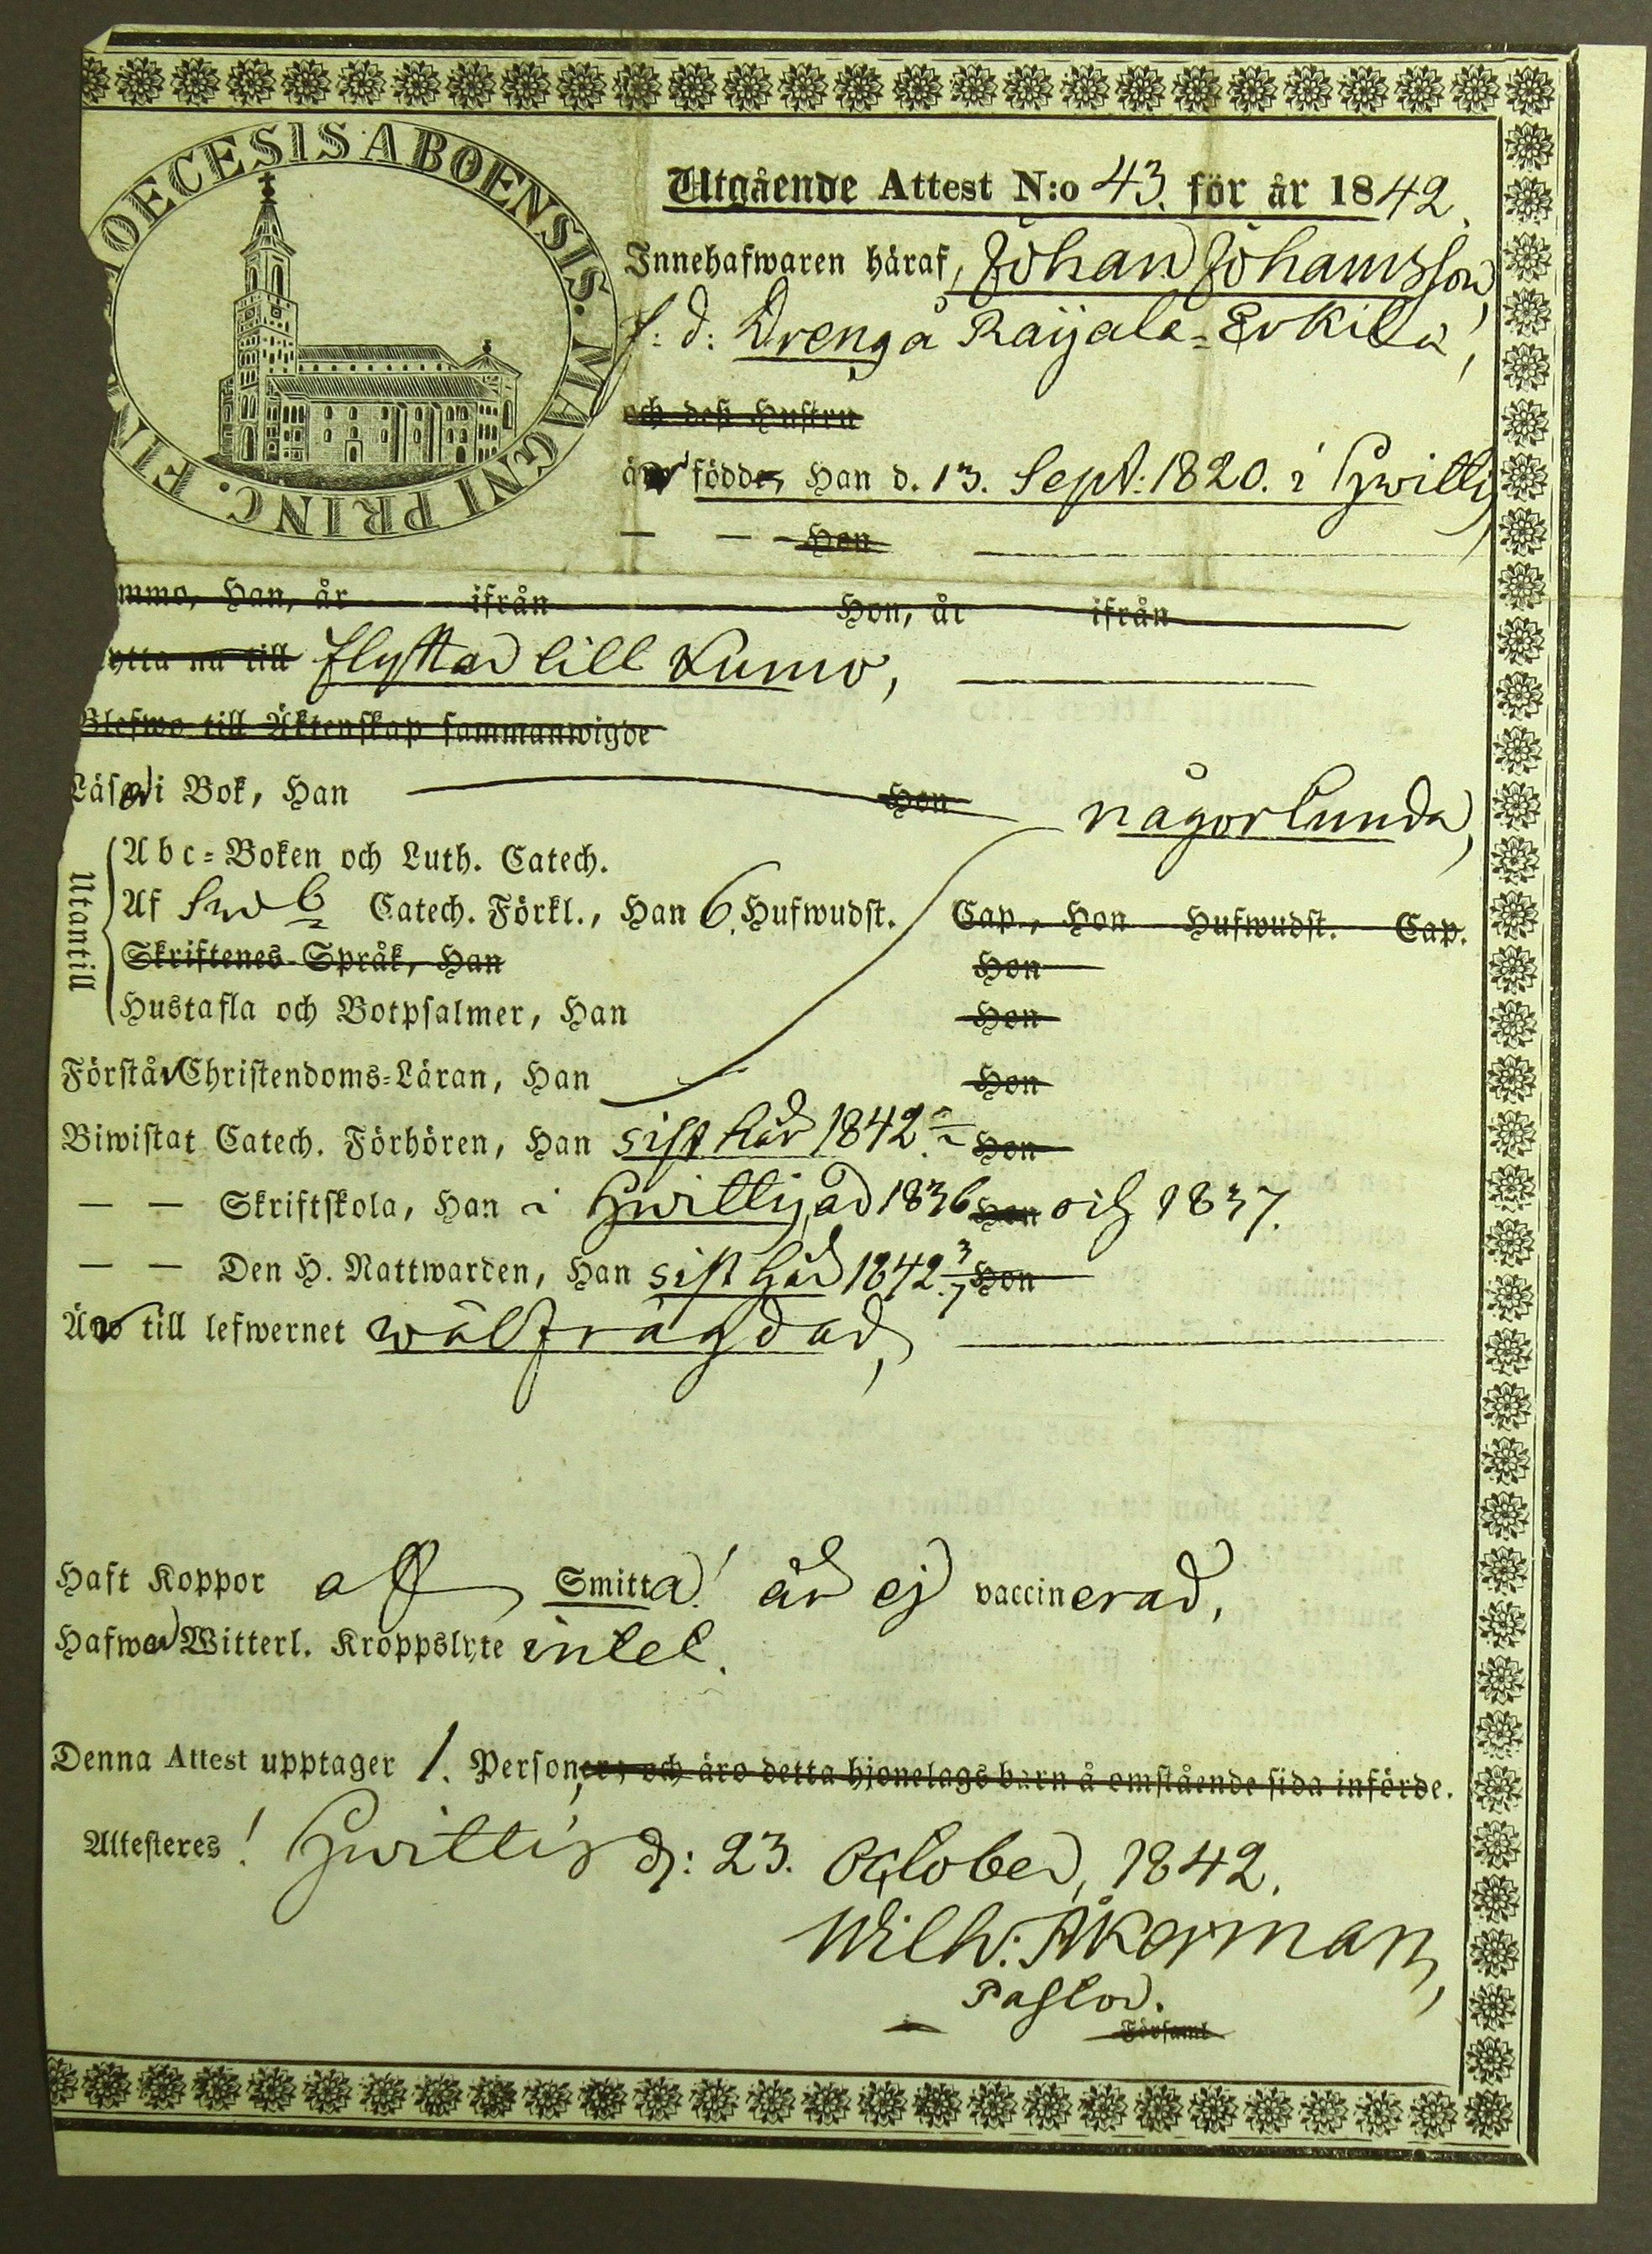 DIOECESIS ABOENSIS. MAGNI PRINC. FIN
Utgående Attest N:o 43. för år 1842.
Innehafwaren häraf, Johan Johansson,
f: d: Dreng å Raijala-Erkilä,
och deß Hustru
är född, Han d. 13. Sept: 1820. i Hwittis,
— — Hon
mmo, Han, år ifrån Hon, år ifrån
ytta nu till flyttar till Kumo,
Blefwo till Äktenskap sammanwigde
Läser i Bok, Han Hon någorlunda,
Utantill
Abc-Boken och Luth. Catech.
Af Sw b Catech. Förkl., Han 6. Hufwudst. Cap., Hon Hufwudst. Cap.
Skriftenes-Språk, Han Hon
Hustafla och Botpsalmer, Han Hon
Förstår Christendoms-Läran, Han Hon
Biwistat Catech. Förhören, Han sist här 1842. Hon
— — Skriftskola, Han i Hwittis, år 1836 Hon och 1837.
— — Den H. Nattwarden, Han sist här 1842 3/7 Hon
Är till lefwernet wälfrägdad,
Haft Koppor aff Smitta! är ej vaccinerad,
Hafwer Witterl. Kroppslyte intet.
Denna Attest upptager 1. Personer, och äro detta hjonelags barn å omstående sida införde.
Attesteres! Hwittis d: 23. October, 1842.
Wilh: Åkerman,
Pastor.
Församl.